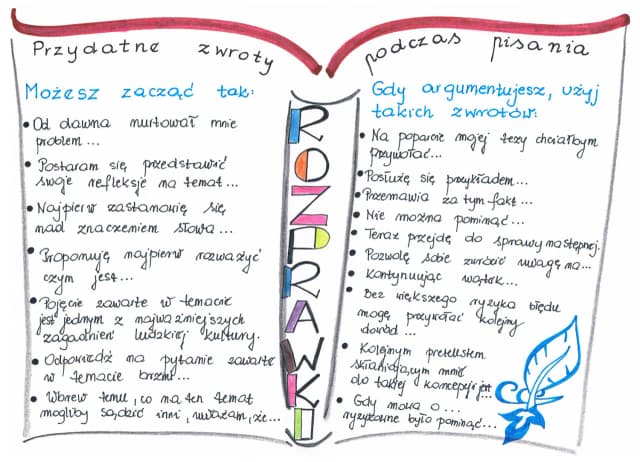 Przydatne zwroty podczas pisania
ROZPRAWKI
Możesz zacząć tak:
• Od dawna nurtował mnie
problem...
• Postaram się przedstawić
swoje refleksje na temat...
• Najpierw zastanowię się
nad znaczeniem słowa...
• Proponuję najpierw rozważyć
czym jest...
• Pojęcie zawarte w temacie
jest jednym z najważniejszych
zagadnień ludzkiej kultury.
• Odpowiedź na pytanie zawarte
w temacie brzmi...
• Wbrew temu, co na ten temat
mogliby sądzić inni, uważam, że...
Gdy argumentujesz, użyj
takich zwrotów:
• Na poparcie mojej tezy chciałbym
przywołać...
• Posłużę się przykładem...
• Przemawia za tym fakt...
• Nie można pominąć...
• Teraz przejdę do sprawy następnej.
• Pozwolę sobie zwrócić uwagę na...
• Kontynuując wątek...
• Bez większego ryzyka błędu
mogę przywołać kolejny
dowód...
• Kolejnym pretekstem
skłaniającym mnie
do takiej koncepcji jest...
• Gdy mowa o...
ryzykowne było pominąć...